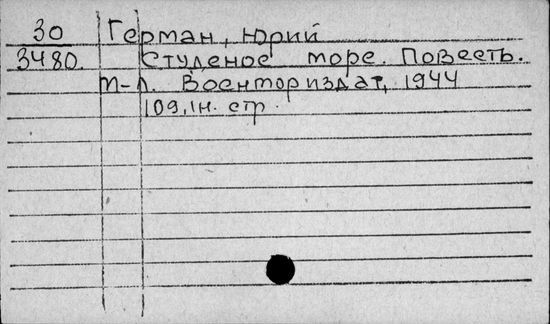 30 Герман, Юрий
3480. Студеное море. Повесть.
М-Л. Воениориздат, 1944
109, 1н. стр.